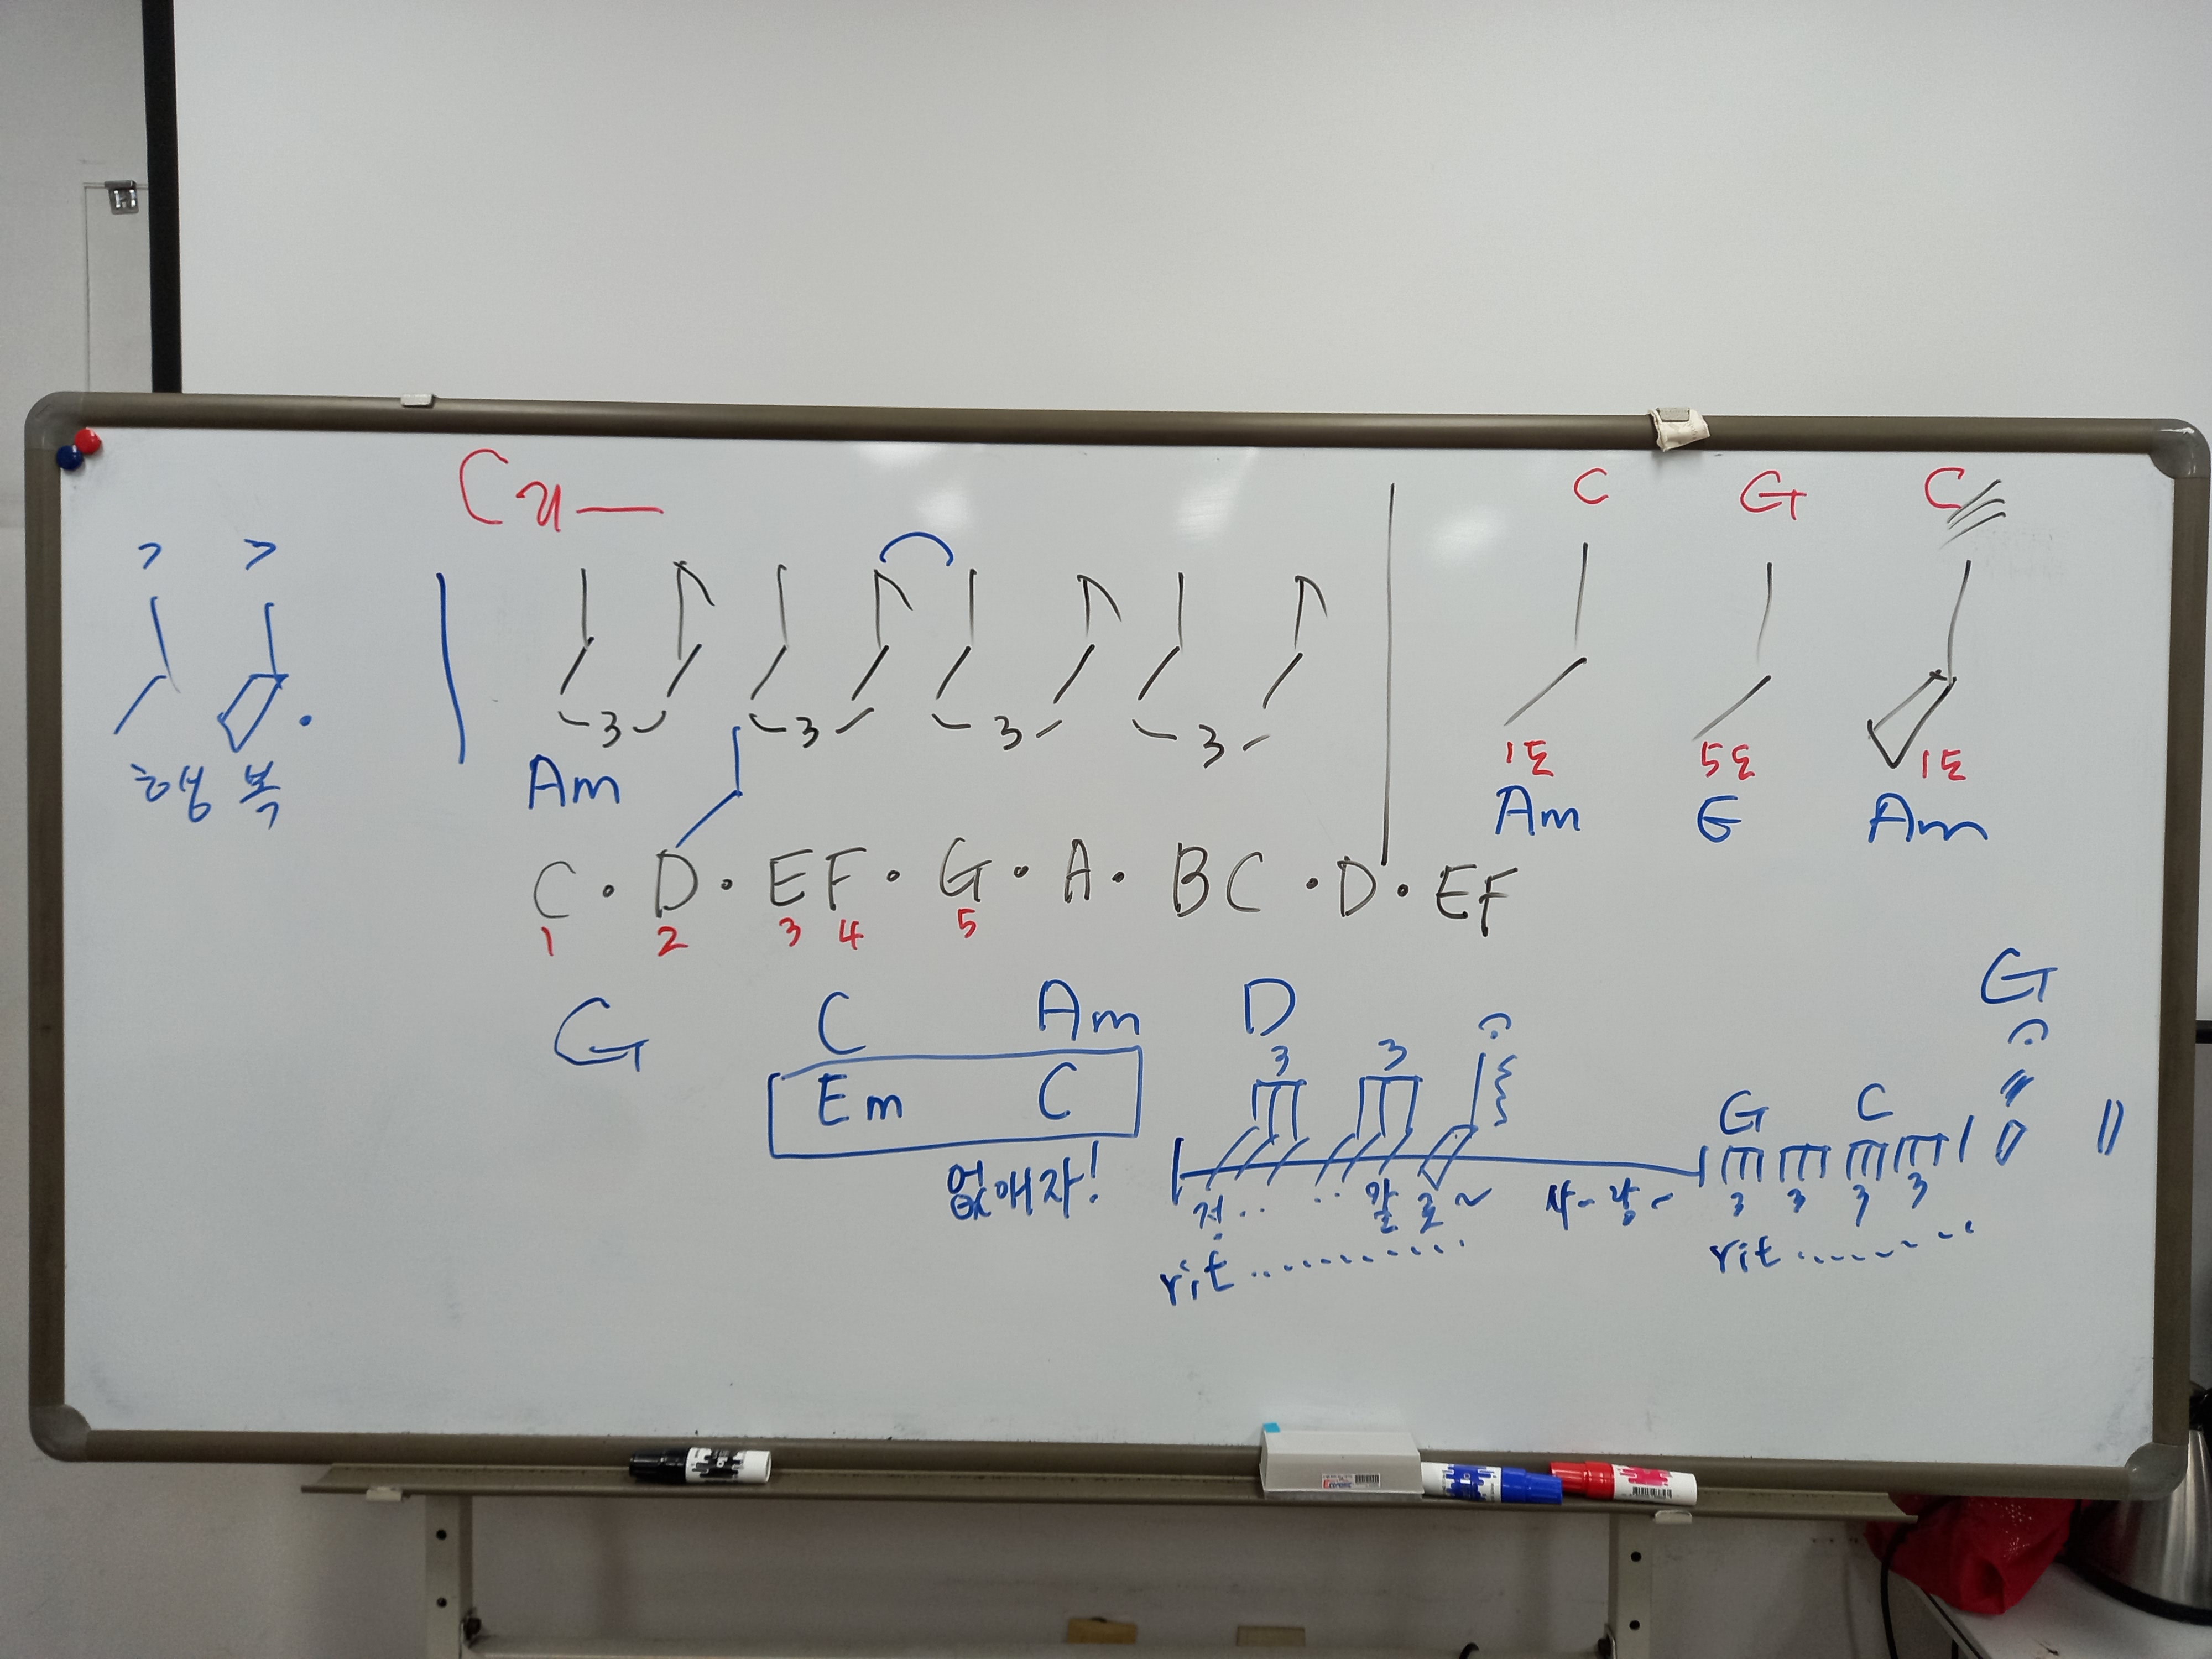 C과 —
C G C
> >
3 3 3 3
행 복
Am
1도 5도 1도
Am E Am
C • D • E F • G • A • B C • D • E F
1 2 3 4 5
G C Am D G
Em C
3 3
G C
없애자!
정.. .. 말 로 ~ 사 - 랑 -
3 3 3 3
rit............
rit..........